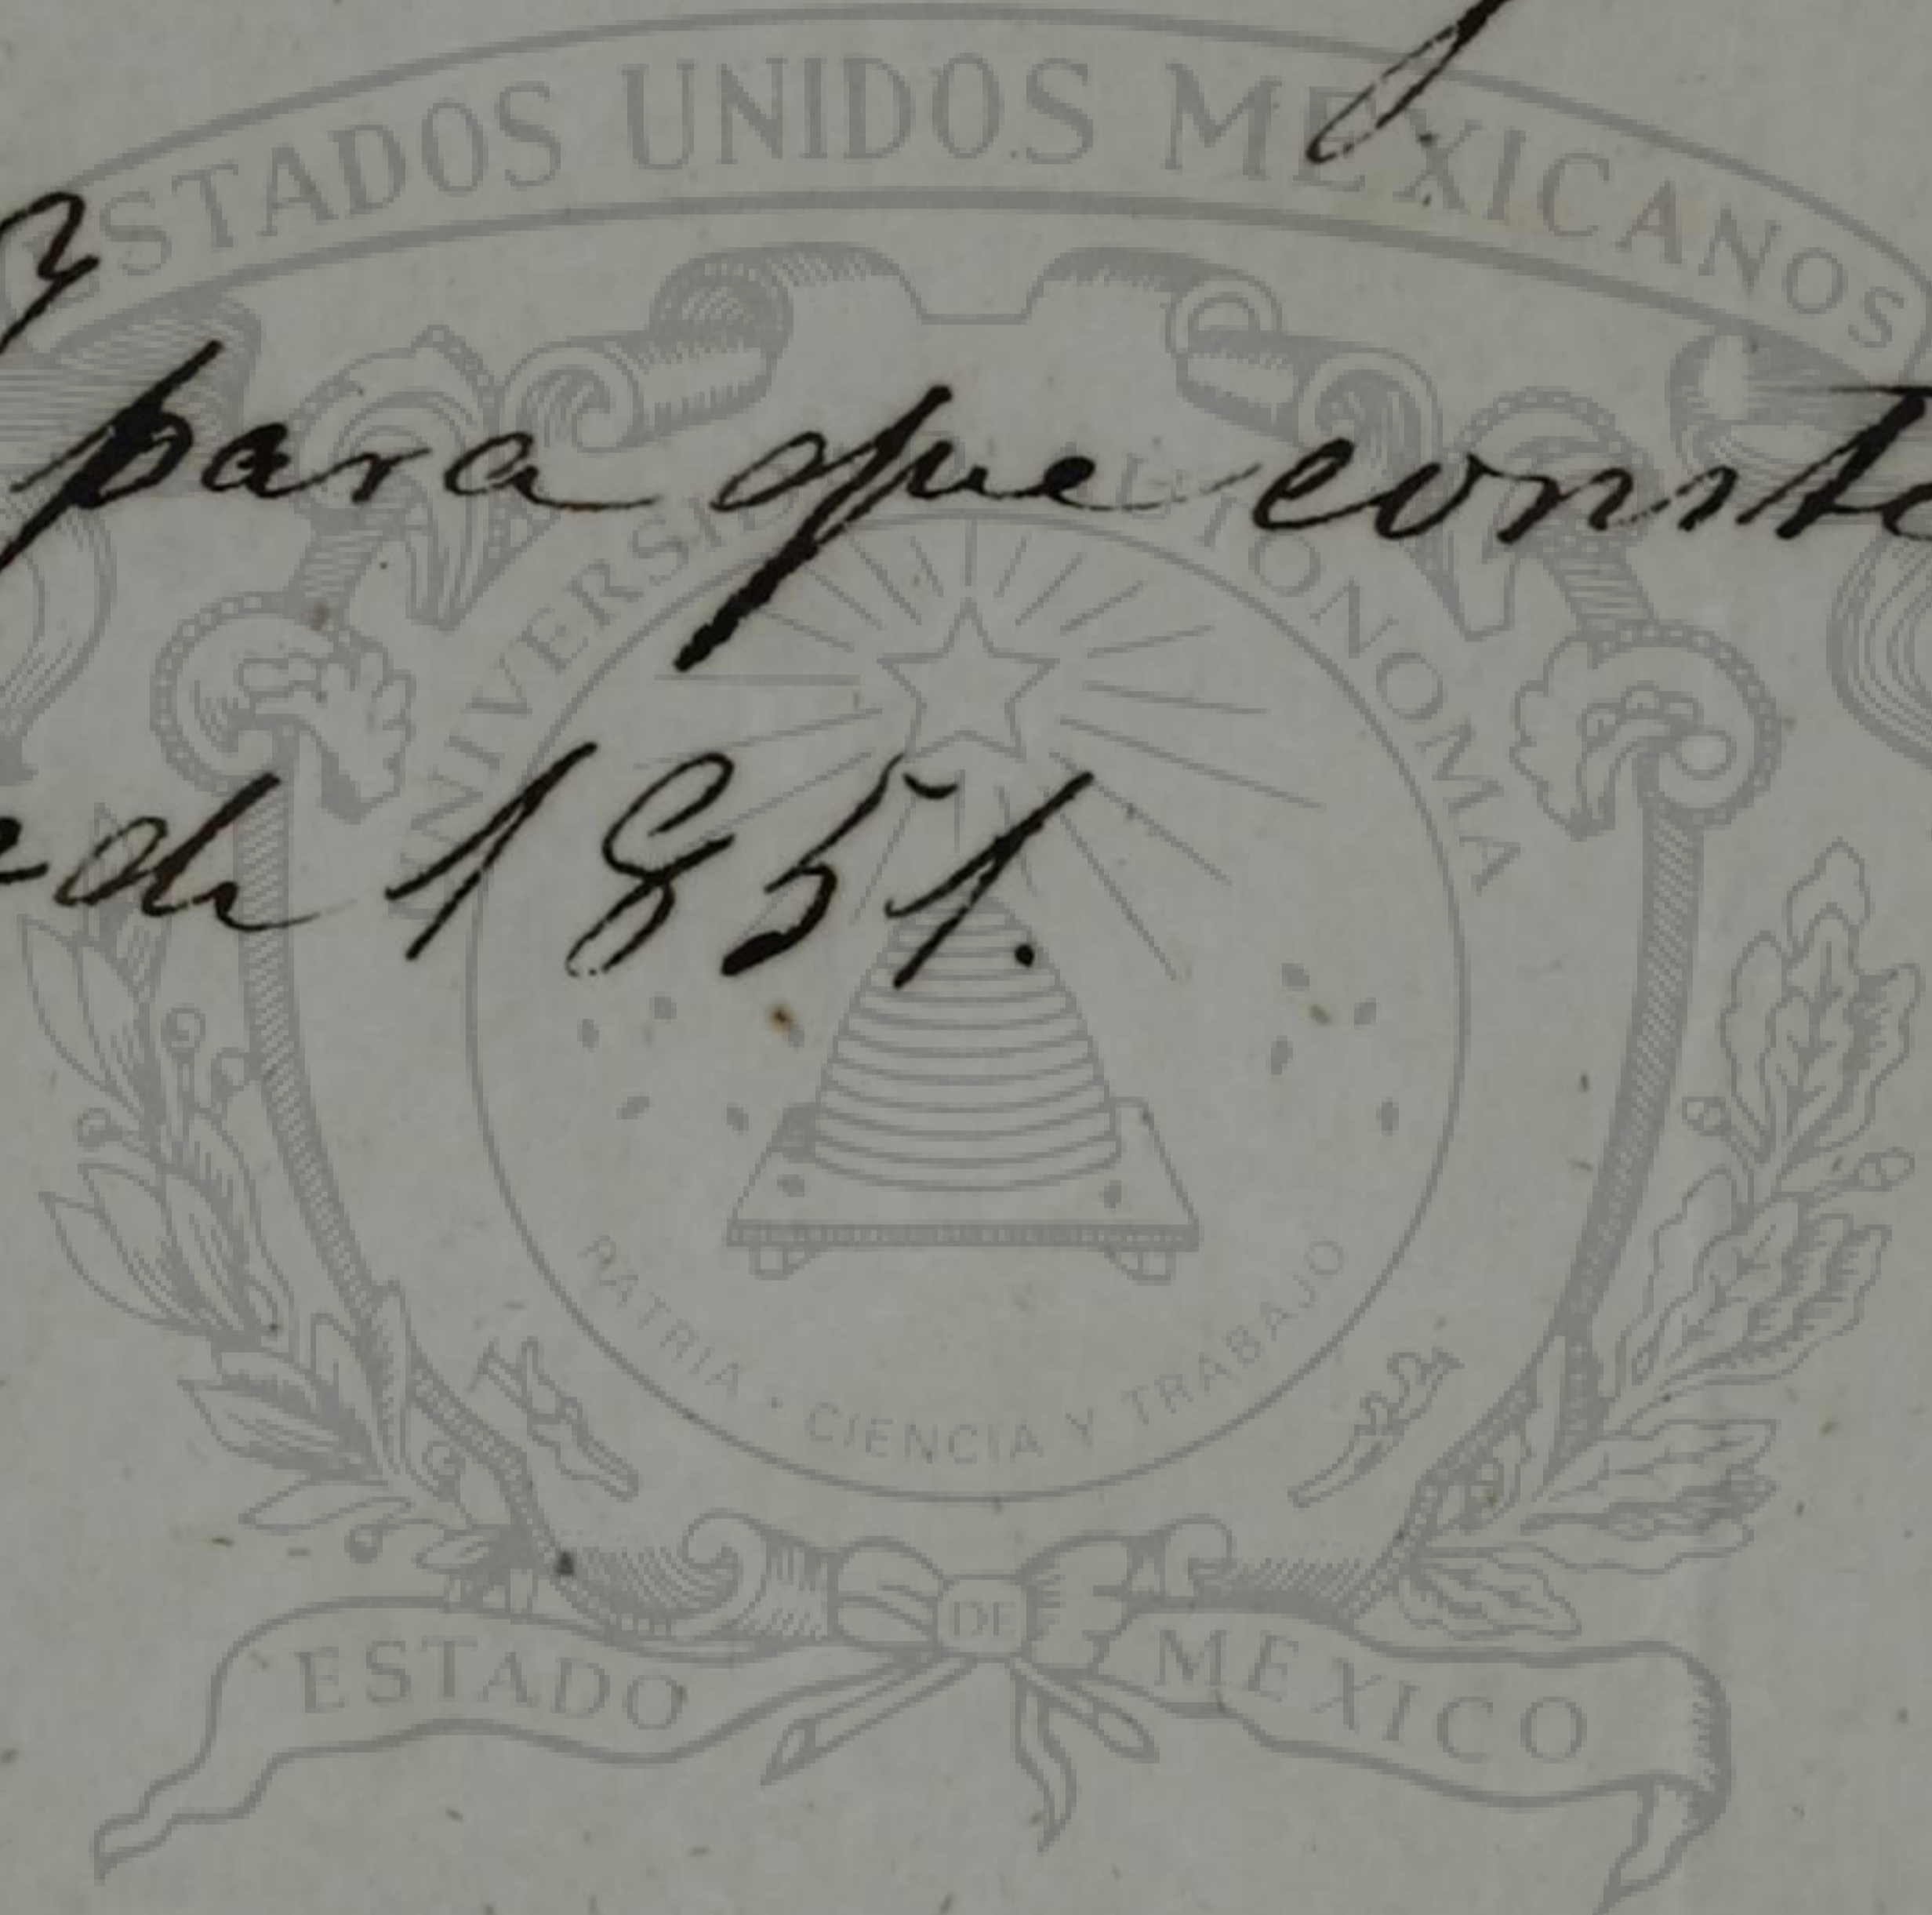 ESTADOS UNIDOS MEXICANOS
para que conste
de 1851.
UNIVERSIDAD AUTONOMA
PATRIA · CIENCIA Y TRABAJO
ESTADO DE MEXICO